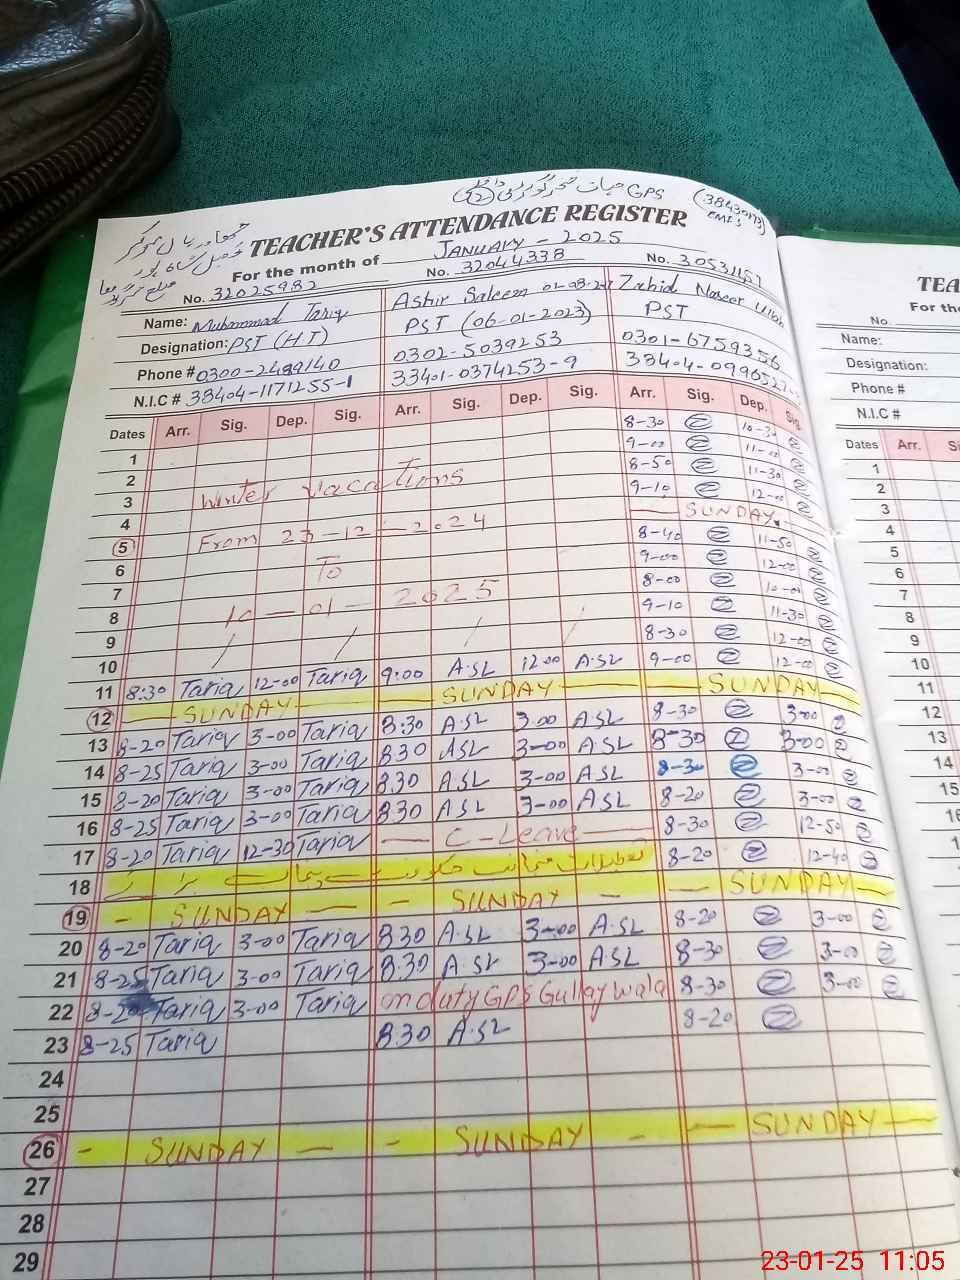 GPS
(38430173)
EMIS
TEACHER'S ATTENDANCE REGISTER
For the month of JANUARY - 2025
No. 32025982 No. 32044338 No. 30531157
Name: Muhammad Tariq Ashir Saleem Zahid Naseer
Designation: PST (H.T) PST (06-01-2023) PST
Phone # 0300-2489140 0302-5039253 0301-6759356
N.I.C # 38404-1171255-1 33401-0374253-9 38404-0996527-
Dates Arr. Sig. Dep. Sig. Arr. Sig. Dep. Sig. Arr. Sig. Dep. Sig.
1 8-30 10-30
2 9-00 11-00
3 Winter Vacations 8-50 11-30
4 9-10 12-00
5 From 23-12-2024 SUNDAY
6 To 8-40 11-50
7 9-00 12-00
8 10-01-2025 8-00 10-00
9 9-10 11-30
10 8-30 12-00
11 8:30 Tariq 12-00 Tariq 9:00 A.SL 12 00 A.SL 9-00 12-00
12 SUNDAY SUNDAY SUNDAY
13 8-20 Tariq 3-00 Tariq 8:30 A.SL 3.00 A.SL 8-30 3-00
14 8-25 Tariq 3-00 Tariq 830 A.SL 3-00 A.SL 8-30 3-00
15 8-20 Tariq 3-00 Tariq 830 A.SL 3-00 A.SL 8-30 3-00
16 8-25 Tariq 3-00 Tariq 830 A.SL 3-00 A.SL 8-20 3-00
17 8-20 Tariq 12-30 Tariq C-Leave 8-30 12-50
18 8-20 12-40
19 - SUNDAY - - SUNDAY - - SUNDAY -
20 8-20 Tariq 3-00 Tariq 830 A.SL 3-00 A.SL 8-20 3-00
21 8-25 Tariq 3-00 Tariq 8:30 A.SL 3-00 A.SL 8-30 3-00
22 8-20 Tariq 3-00 Tariq on duty GPS Gullay wala 8-30 3-00
23 8-25 Tariq 830 A.SL 8-20
24
25
26 - SUNDAY - - SUNDAY - - SUNDAY -
27
28
29
TEA
For the
No.
Name:
Designation:
Phone #
N.I.C #
Dates Arr.
1
2
3
4
5
6
7
8
9
10
11
12
13
14
15
23-01-25 11:05